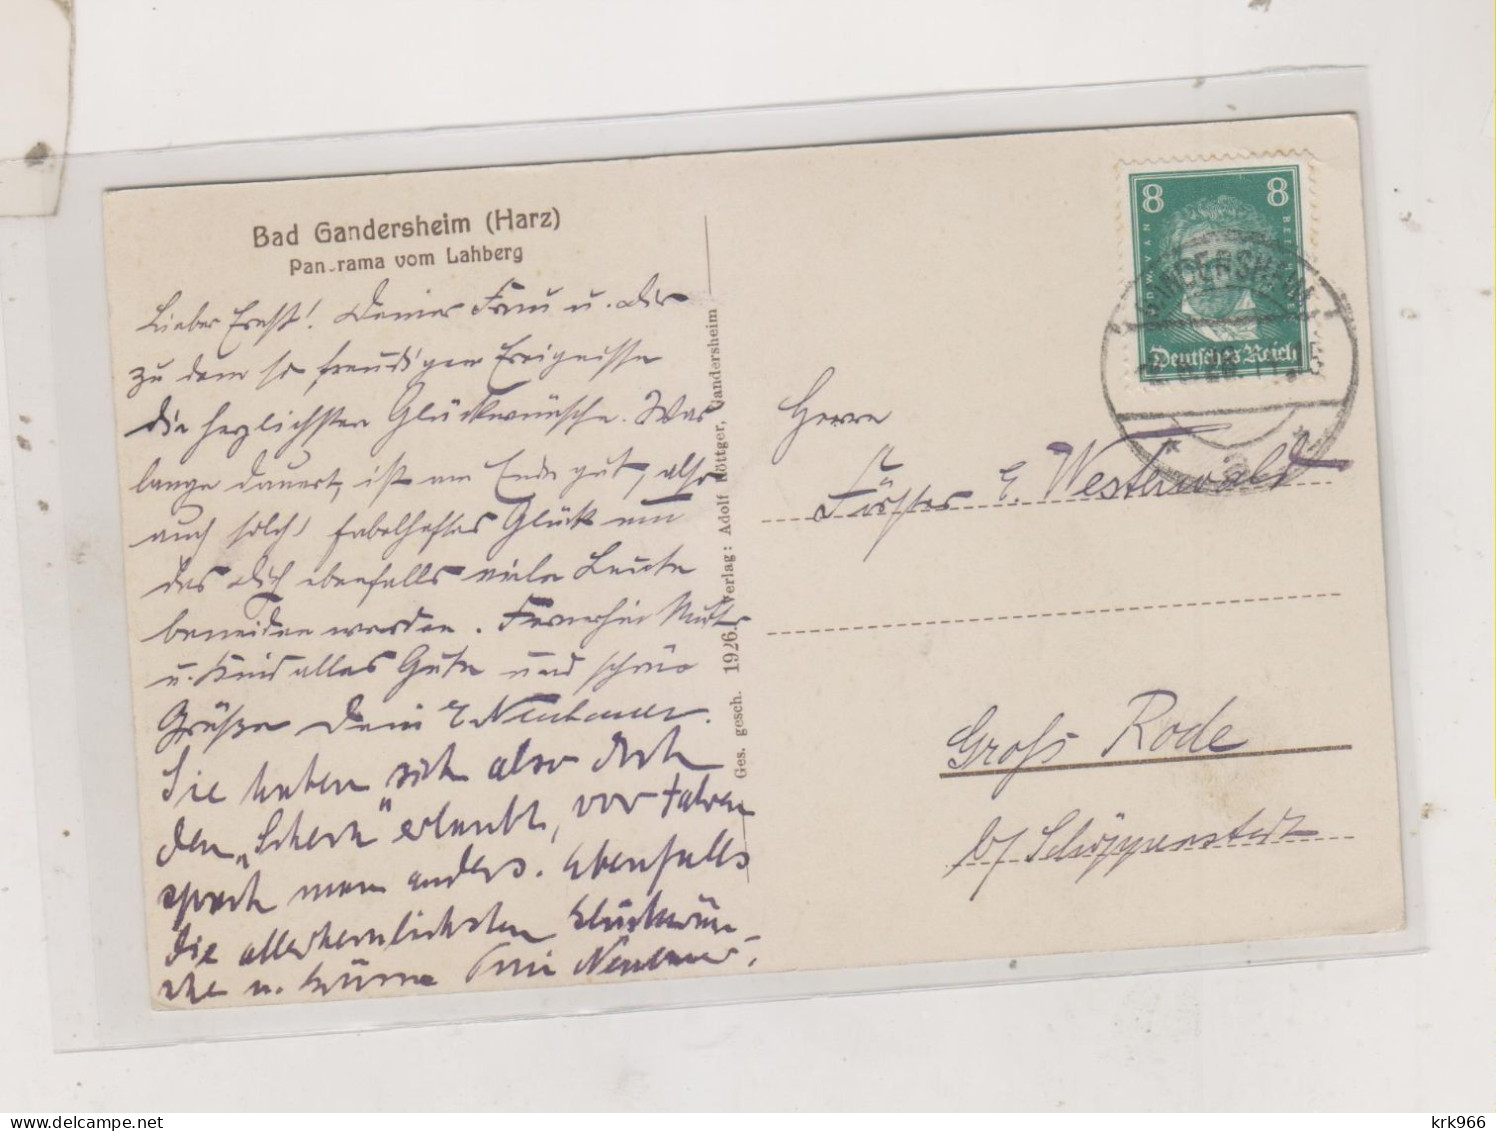 Bad Gandersheim (Harz)
Panorama vom Lahberg
Lieber Ernst! Deiner Frau u. Dir
zu dem so freudigen Ereignisse
die herzlichsten Glückwünsche. Was
lange dauert, ist am Ende gut, also
auch solch' fabelhaftes Glück um
das Dich ebenfalls viele Leute
beneiden werden. Fernerhin Mutter
u. Kind alles Gute und schöne
Grüße Dein E Neubauer.
Sie haben sich also doch
den „Scherz“ erlaubt, vor Jahren
sprach man anders. Ebenfalls
die allerherzlichsten Glückwün-
sche u. Grüsse Neubauer.
Ges. gesch. 1926. Verlag: Adolf Röttger, Gandersheim
8 8
Deutsches Reich
GANDERSHEIM
Herrn
Förster E. Westerwald
Gross Rode
b/ Schöppenstedt
krk966